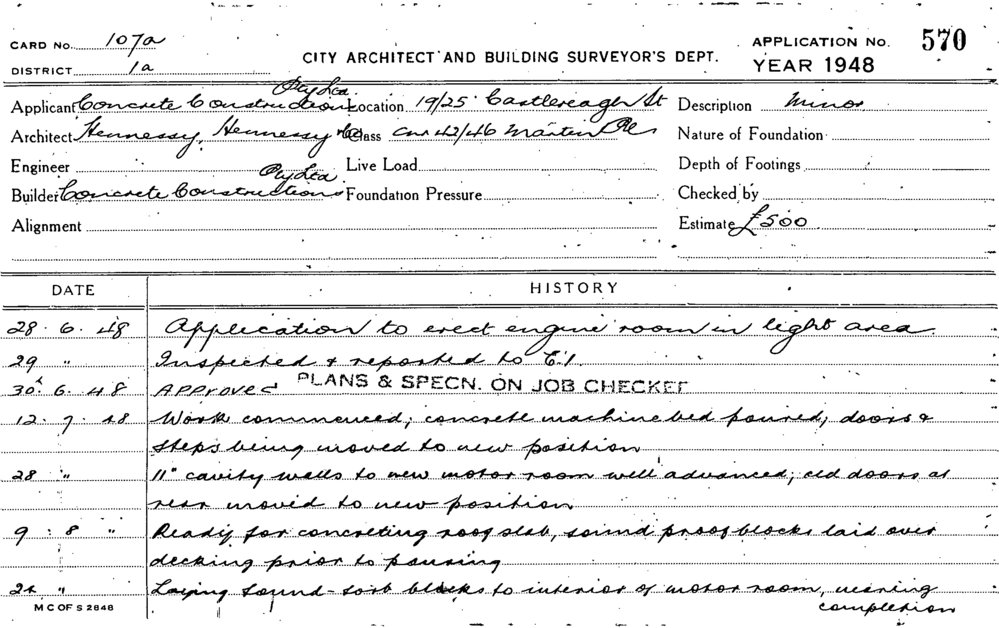 CARD No. 107a
CITY ARCHITECT AND BUILDING SURVEYOR'S DEPT.
APPLICATION No. 570
DISTRICT 1a
YEAR 1948
Applicant Concrete Constructions Pty Ltd. Location 19/25 Castlereagh St Description Minor
Architect Hennessy, Hennessy & Co Class cnr 42/46 Martin Pl. Nature of Foundation
Engineer Live Load Depth of Footings
Builder Concrete Constructions Pty Ltd Foundation Pressure Checked by
Alignment Estimate £500
DATE HISTORY
28 . 6 . 48 Application to erect engine room in light area
29 " Inspected & reported to C.I.
30 . 6 . 48 APProved PLANS & SPECN. ON JOB CHECKED
12 . 7 . 48 Work commenced; concrete machine bed poured; doors &
steps being moved to new position
28 " 11" cavity walls to new motor room well advanced; old doors at
rear moved to new position
9 . 8 " Ready for concreting roof slab, sound proof blocks laid over
decking prior to pouring
24 " Laying sound-sorb blocks to interior of motor room, nearing
completion
M C OF S 2848